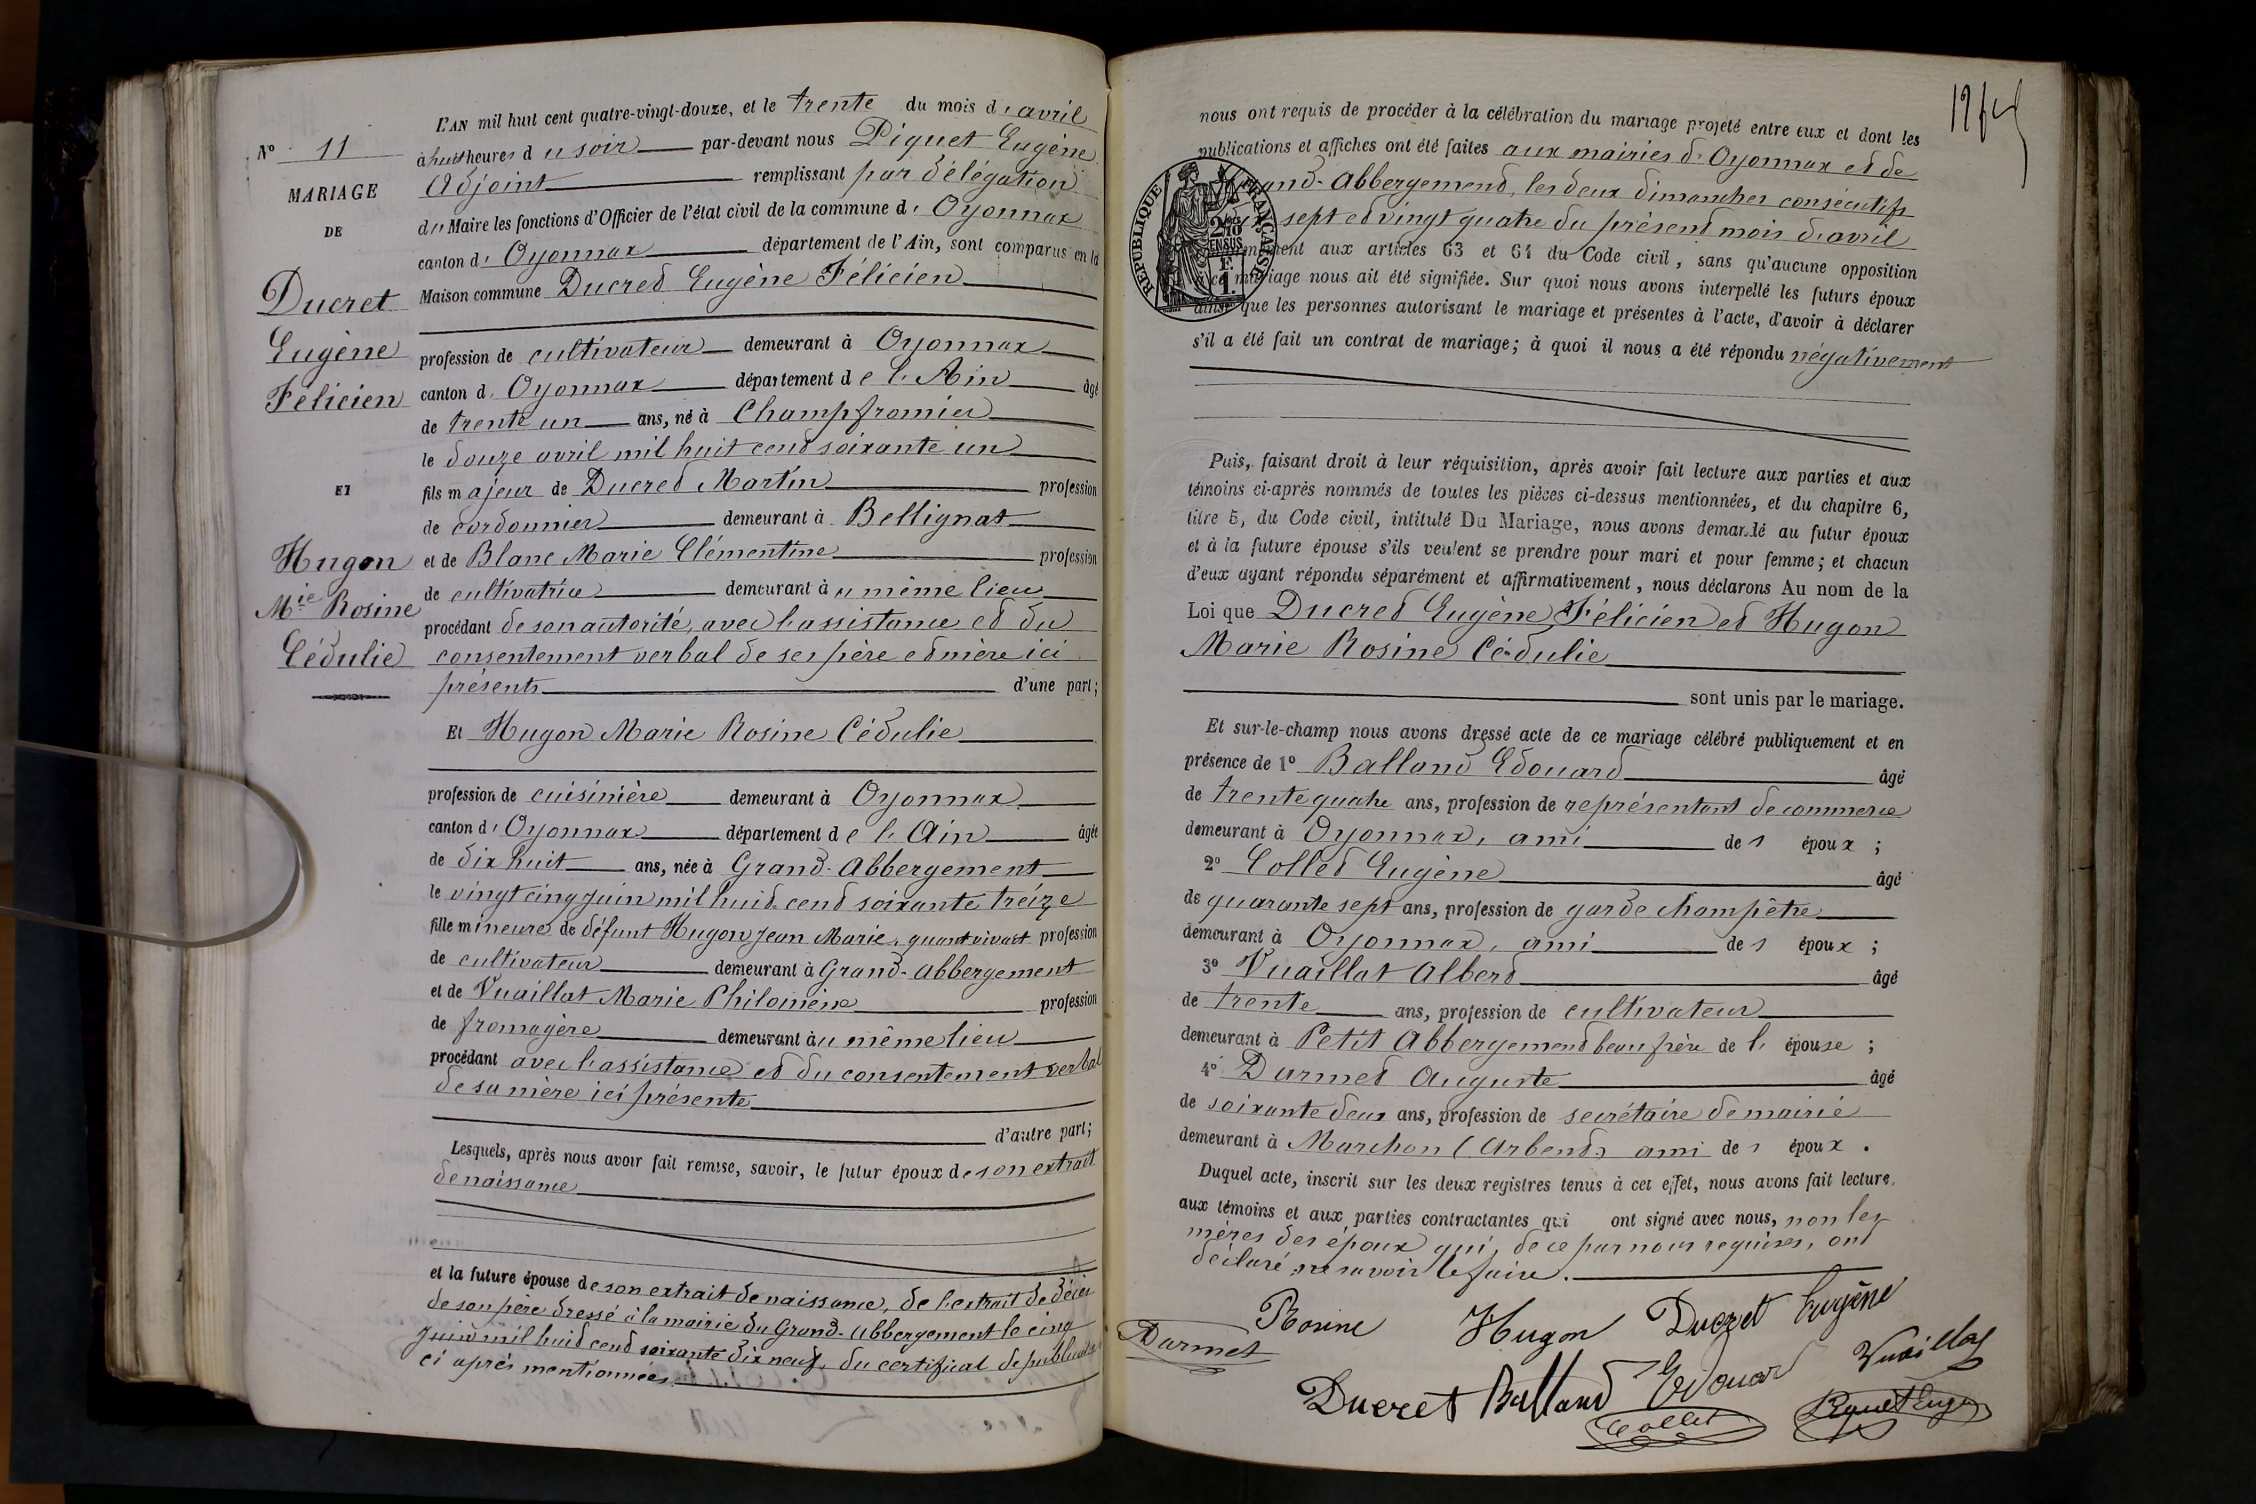 L'AN mil huit cent quatre-vingt-douze, et le trente du mois d'avril
N° 11
à huit heures du soir par-devant nous Piquet Eugène
MARIAGE
DE
Adjoint remplissant par délégation
du Maire les fonctions d'Officier de l'état civil de la commune d'Oyonnax
canton d'Oyonnax département de l'Ain, sont comparus en la
Maison commune Ducret Eugène Félicien
Ducret
Eugène
Félicien
profession de cultivateur demeurant à Oyonnax
canton d'Oyonnax département de l'Ain âgé
de trente un ans, né à Champfromier
le douze avril mil huit cent soixante un
ET
fils majeur de Ducret Martin profession
de cordonnier demeurant à Bellignat
Hugon
Mie Rosine
Cédulie
et de Blanc Marie Clémentine profession
de cultivatrice demeurant à u même lieu
procédant de son autorité, avec l'assistance et du
consentement verbal de ses père et mère ici
présents d'une part;
Et Hugon Marie Rosine Cédulie
profession de cuisinière demeurant à Oyonnax
canton d'Oyonnax département de l'Ain âgée
de dix huit ans, née à Grand-Abbergement
le vingt cinq juin mil huit cent soixante treize
fille mineure de défunt Hugon Jean Marie, quant vivait profession
de cultivateur demeurant à Grand-Abbergement
et de Vuaillat Marie Philomène profession
de fromagère demeurant à u même lieu
procédant avec l'assistance et du consentement verbal
de sa mère ici présente
d'autre part;
Lesquels, après nous avoir fait remise, savoir, le futur époux de son extrait
de naissance
et la future épouse de son extrait de naissance, de l'extrait de décès
de son père dressé à la mairie du Grand-Abbergement le cinq
juin mil huit cent soixante dix neuf, du certificat de publication
ci après mentionnées
nous ont requis de procéder à la célébration du mariage projeté entre eux et dont les
publications et affiches ont été faites aux mairies d'Oyonnax et de
Grand-Abbergement, les deux dimanches consécutifs
sept et vingt quatre du présent mois d'avril
conformément aux articles 63 et 64 du Code civil, sans qu'aucune opposition
à ce mariage nous ait été signifiée. Sur quoi nous avons interpellé les futurs époux
ainsi que les personnes autorisant le mariage et présentes à l'acte, d'avoir à déclarer
s'il a été fait un contrat de mariage; à quoi il nous a été répondu négativement
RÉPUBLIQUE FRANÇAISE
2/10 EN SUS
F. 1.
Puis, faisant droit à leur réquisition, après avoir fait lecture aux parties et aux
témoins ci-après nommés de toutes les pièces ci-dessus mentionnées, et du chapitre 6,
titre 5, du Code civil, intitulé Du Mariage, nous avons demandé au futur époux
et à la future épouse s'ils veulent se prendre pour mari et pour femme; et chacun
d'eux ayant répondu séparément et affirmativement, nous déclarons Au nom de la
Loi que Ducret Eugène Félicien et Hugon
Marie Rosine Cédulie
sont unis par le mariage.
Et sur-le-champ nous avons dressé acte de ce mariage célébré publiquement et en
présence de 1° Balland Edouard âgé
de trente quatre ans, profession de représentant de commerce
demeurant à Oyonnax, ami des époux ;
2° Collet Eugène âgé
de quarante sept ans, profession de garde champêtre
demeurant à Oyonnax, ami des époux ;
3° Vuaillat Albert âgé
de trente ans, profession de cultivateur
demeurant à Petit Abbergement beau frère de l'épouse ;
4° Darmet Auguste âgé
de soixante deux ans, profession de secrétaire de mairie
demeurant à Marchon (Arbent) ami des époux.
Duquel acte, inscrit sur les deux registres tenus à cet effet, nous avons fait lecture
aux témoins et aux parties contractantes qui ont signé avec nous, non les
mères des époux qui, de ce par nous requises, ont
déclaré ne savoir le faire.
Rosine Hugon Ducret Eugène
Darmet
Vuaillat
Ducret Balland Edouard
Collet
Piquet Eugène